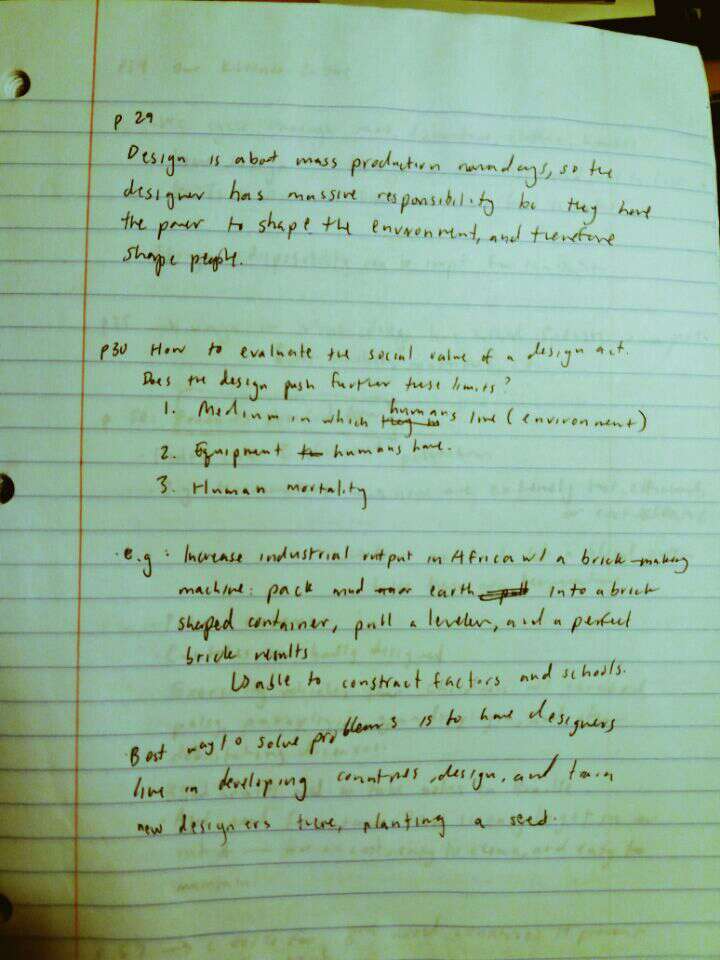 p 29
Design is about mass production nowadays, so the
designer has massive responsibility bc they have
the power to shape the environment, and therefore
shape people.
p30 How to evaluate the social value of a design act.
Does the design push further these limits?
1. Medium in which humans live (environment)
2. Equipment humans have.
3. Human mortality
e.g: Increase industrial output in Africa w/ a brick-making
machine: pack mud or earth into a brick
shaped container, pull a leveler, and a perfect
brick results
↳ able to construct factors and schools.
Best way to solve problems is to have designers
live in developing countries, design, and train
new designers there, planting a seed.